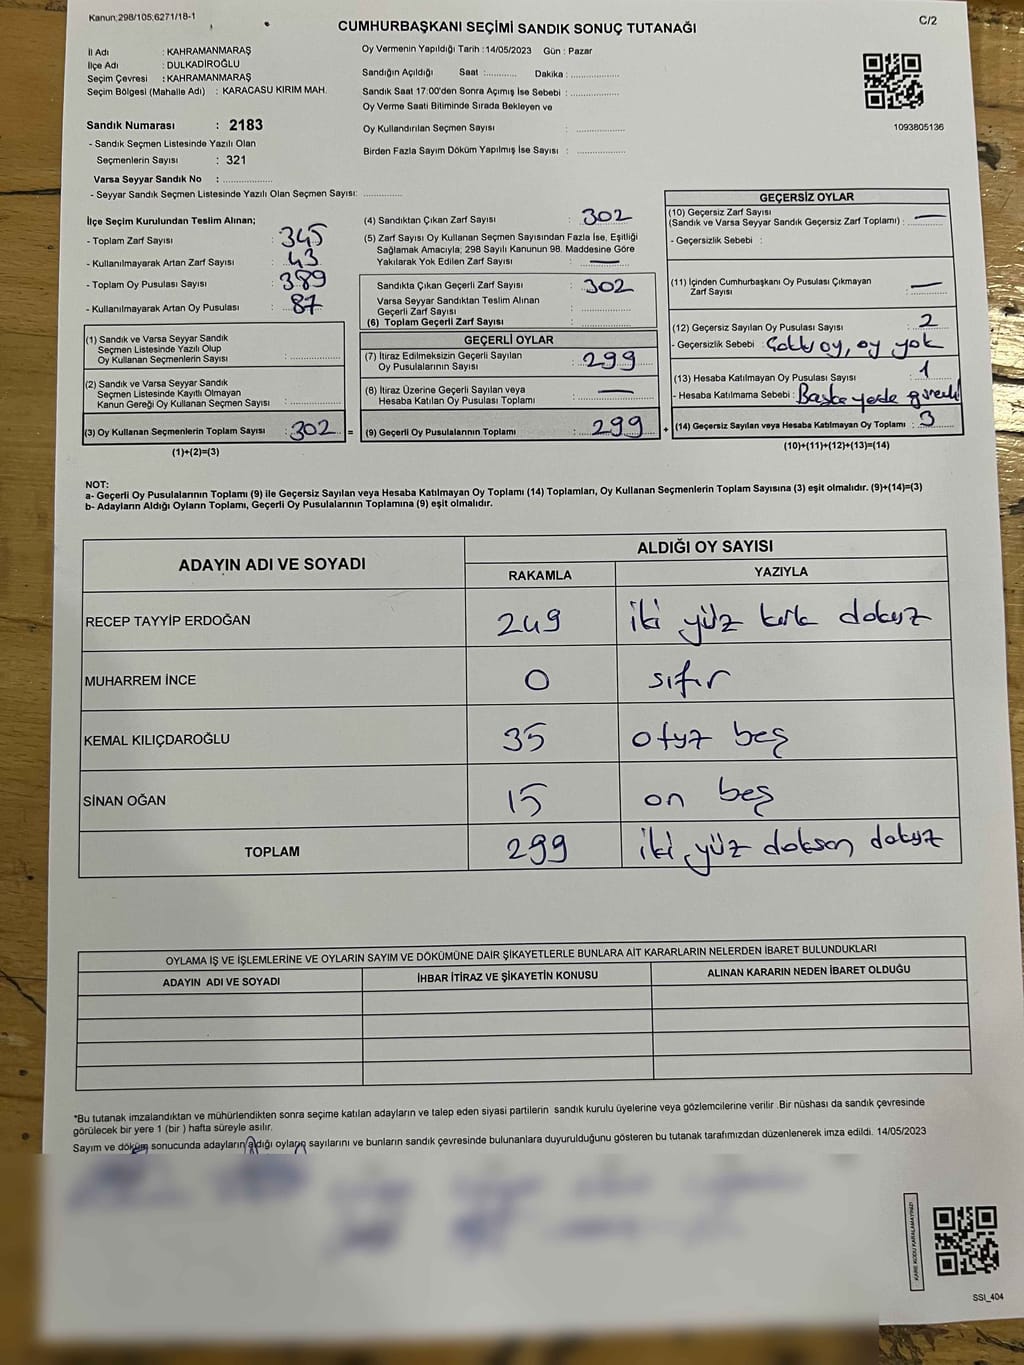 Kanun;298/105;6271/18-1
C/2
CUMHURBAŞKANI SEÇİMİ SANDIK SONUÇ TUTANAĞI
İl Adı : KAHRAMANMARAŞ
İlçe Adı : DULKADİROĞLU
Seçim Çevresi : KAHRAMANMARAŞ
Seçim Bölgesi (Mahalle Adı) : KARACASU KIRIM MAH.
Oy Vermenin Yapıldığı Tarih :14/05/2023 Gün : Pazar
Sandığın Açıldığı Saat :............ Dakika : ................
Sandık Saat 17:00'den Sonra Açımış İse Sebebi : ................
Oy Verme Saati Bitiminde Sırada Bekleyen ve
Oy Kullandırılan Seçmen Sayısı : ................
Birden Fazla Sayım Döküm Yapılmış İse Sayısı : ................
1093805136
Sandık Numarası : 2183
- Sandık Seçmen Listesinde Yazılı Olan
Seçmenlerin Sayısı : 321
Varsa Seyyar Sandık No : ................
- Seyyar Sandık Seçmen Listesinde Yazılı Olan Seçmen Sayısı: .............
İlçe Seçim Kurulundan Teslim Alınan;
- Toplam Zarf Sayısı : 345
- Kullanılmayarak Artan Zarf Sayısı : 43
- Toplam Oy Pusulası Sayısı : 389
- Kullanılmayarak Artan Oy Pusulası : 87
(1) Sandık ve Varsa Seyyar Sandık
Seçmen Listesinde Yazılı Olup
Oy Kullanan Seçmenlerin Sayısı : ................
(2) Sandık ve Varsa Seyyar Sandık
Seçmen Listesinde Kayıtlı Olmayan
Kanun Gereği Oy Kullanan Seçmen Sayısı : ................
(3) Oy Kullanan Seçmenlerin Toplam Sayısı : 302 =
(1)+(2)=(3)
(4) Sandıktan Çıkan Zarf Sayısı : 302
(5) Zarf Sayısı Oy Kullanan Seçmen Sayısından Fazla İse, Eşitliği
Sağlamak Amacıyla; 298 Sayılı Kanunun 98. Maddesine Göre
Yakılarak Yok Edilen Zarf Sayısı : —
Sandıkta Çıkan Geçerli Zarf Sayısı : 302
Varsa Seyyar Sandıktan Teslim Alınan
Geçerli Zarf Sayısı : ................
(6) Toplam Geçerli Zarf Sayısı : ................
GEÇERLİ OYLAR
(7) İtiraz Edilmeksizin Geçerli Sayılan
Oy Pusulalarının Sayısı : 299
(8) İtiraz Üzerine Geçerli Sayılan veya
Hesaba Katılan Oy Pusulası Toplamı : —
(9) Geçerli Oy Pusulalarının Toplamı : 299 +
GEÇERSİZ OYLAR
(10) Geçersiz Zarf Sayısı
(Sandık ve Varsa Seyyar Sandık Geçersiz Zarf Toplamı) : —
- Geçersizlik Sebebi :
(11) İçinden Cumhurbaşkanı Oy Pusulası Çıkmayan
Zarf Sayısı : —
(12) Geçersiz Sayılan Oy Pusulası Sayısı : 2
- Geçersizlik Sebebi : Çoklu oy, oy yok
(13) Hesaba Katılmayan Oy Pusulası Sayısı : 1
- Hesaba Katılmama Sebebi : Başka yerde
(14) Geçersiz Sayılan veya Hesaba Katılmayan Oy Toplamı : 3
(10)+(11)+(12)+(13)=(14)
NOT:
a- Geçerli Oy Pusulalarının Toplamı (9) ile Geçersiz Sayılan veya Hesaba Katılmayan Oy Toplamı (14) Toplamları, Oy Kullanan Seçmenlerin Toplam Sayısına (3) eşit olmalıdır. (9)+(14)=(3)
b- Adayların Aldığı Oyların Toplamı, Geçerli Oy Pusulalarının Toplamına (9) eşit olmalıdır.
ADAYIN ADI VE SOYADI
ALDIĞI OY SAYISI
RAKAMLA YAZIYLA
RECEP TAYYİP ERDOĞAN 249 iki yüz kırk dokuz
MUHARREM İNCE 0 sıfır
KEMAL KILIÇDAROĞLU 35 otuz beş
SİNAN OĞAN 15 on beş
TOPLAM 299 iki yüz doksan dokuz
OYLAMA İŞ VE İŞLEMLERİNE VE OYLARIN SAYIM VE DÖKÜMÜNE DAİR ŞİKAYETLERLE BUNLARA AİT KARARLARIN NELERDEN İBARET BULUNDUKLARI
ADAYIN ADI VE SOYADI İHBAR İTİRAZ VE ŞİKAYETİN KONUSU ALINAN KARARIN NEDEN İBARET OLDUĞU
*Bu tutanak imzalandıktan ve mühürlendikten sonra seçime katılan adayların ve talep eden siyasi partilerin sandık kurulu üyelerine veya gözlemcilerine verilir .Bir nüshası da sandık çevresinde
görülecek bir yere 1 (bir ) hafta süreyle asılır.
Sayım ve döküm sonucunda adayların aldığı oyların sayılarını ve bunların sandık çevresinde bulunanlara duyurulduğunu gösteren bu tutanak tarafımızdan düzenlenerek imza edildi. 14/05/2023
KARE KODU KARALAMAYINIZ!
SSI_404